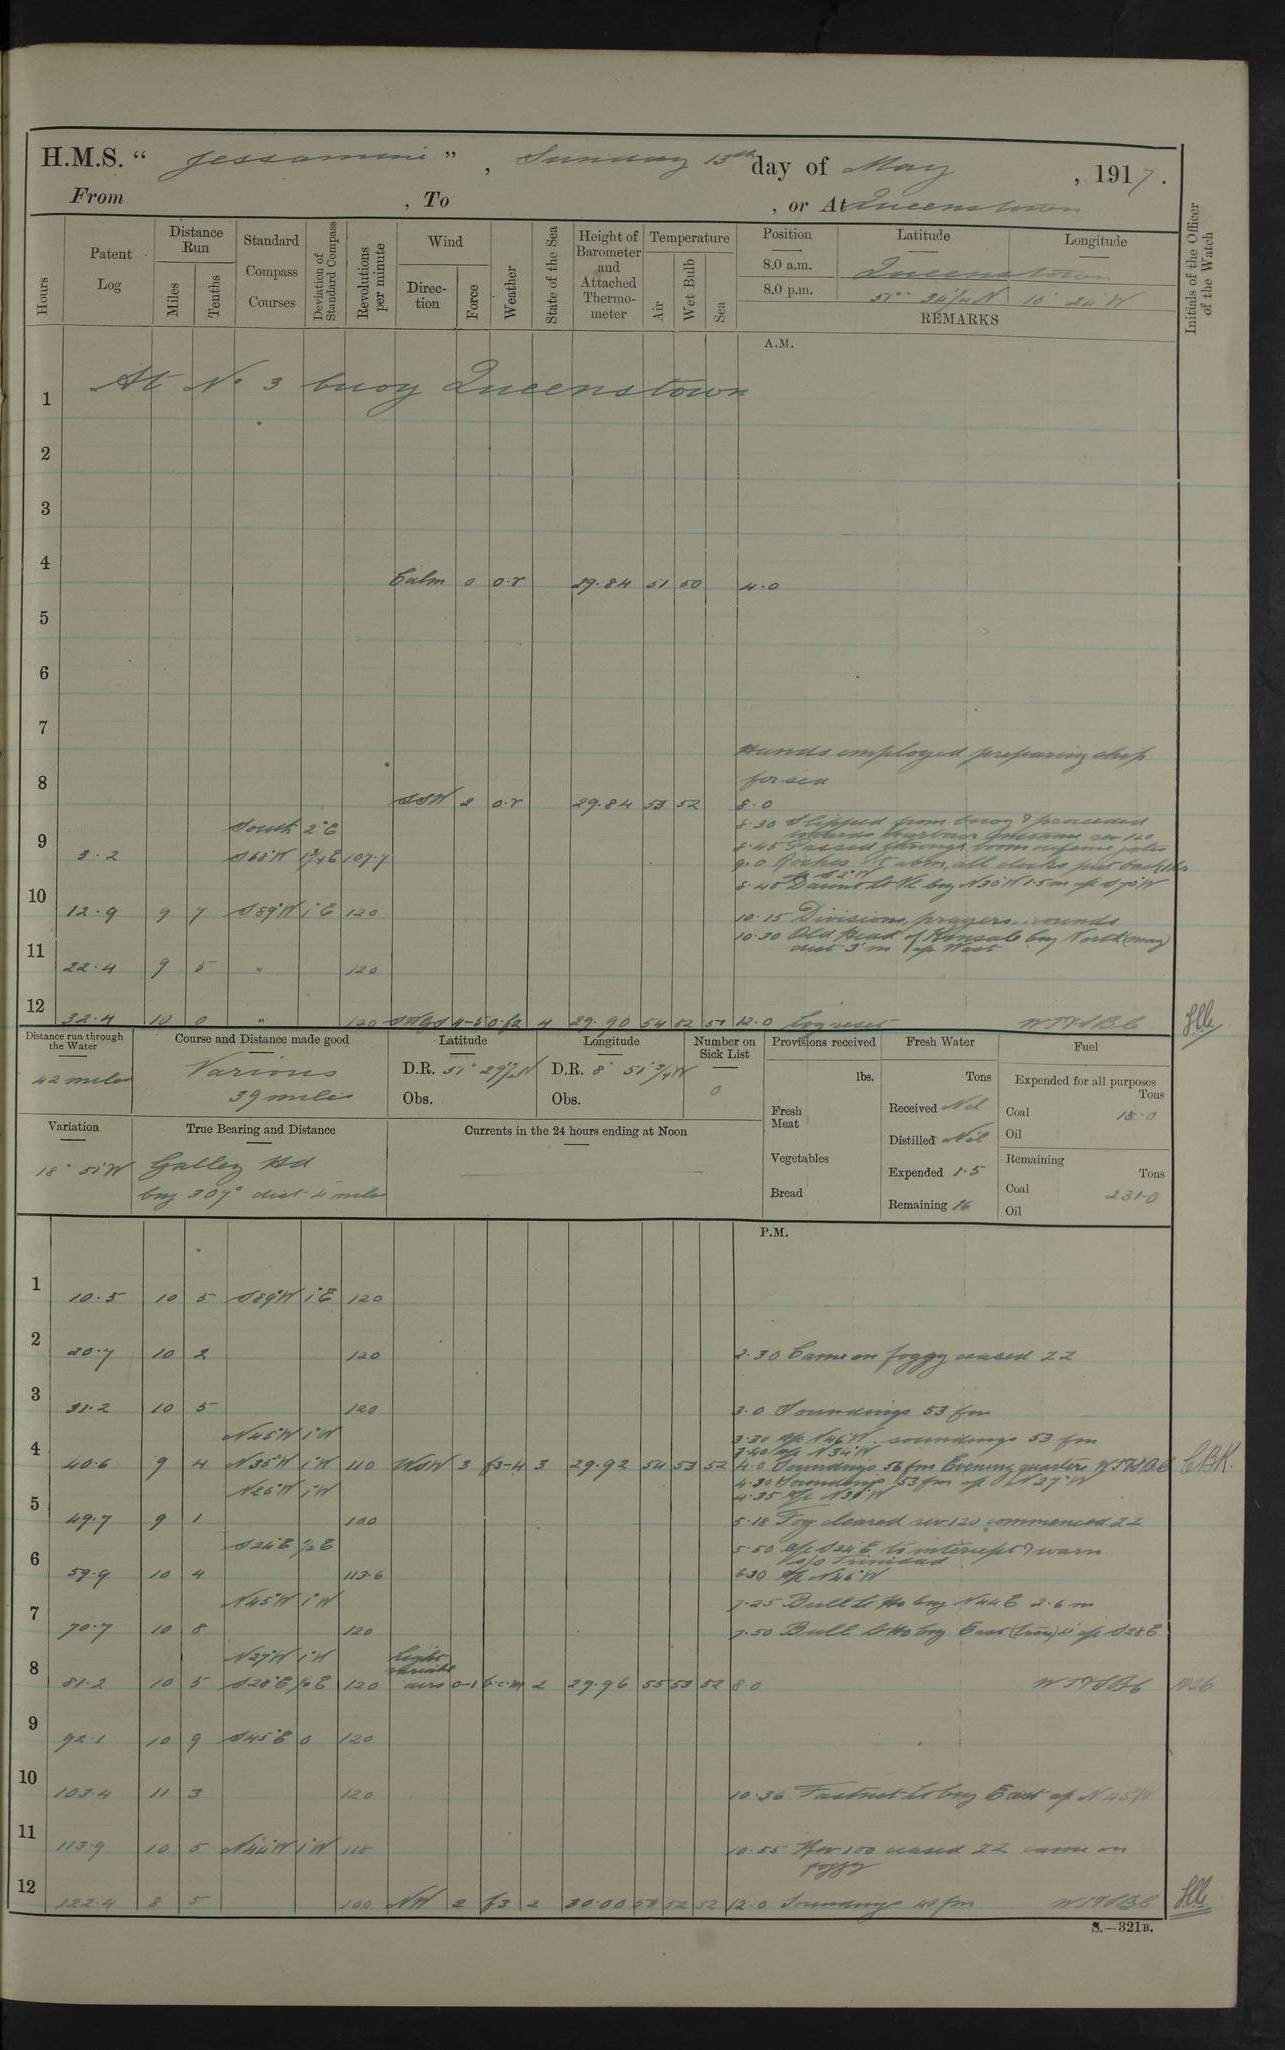 H.M.S. " Jessamine " , Sunday 13th day of May , 1917.
From , To , or At Queenstown
Hours
Patent Log
Distance Run
Miles
Tenths
Standard Compass Courses
Deviation of Standard Compass
Revolutions per minute
Wind
Direction
Force
Weather
State of the Sea
Height of Barometer and Attached Thermometer
Temperature
Air
Wet Bulb
Sea
Position
Latitude
Longitude
8.0 a.m. Queenstown
8.0 p.m. 10° 24' W
REMARKS
Initials of the Officer of the Watch
A.M.
At No 3 buoy Queenstown
1
2
3
4 Calm 0 o.r 29.84 51 50 4.0
5
6
7
Hands employed preparing ship
for sea
8 SSW 2 o.r 29.84 53 52 8.0
South 2°E
8.30 Slipped from buoy & proceeded
towards harbour entrance rev 120
9 3.2 S68°W 107.7
8.45 Passed through boom defence gates
9.0 Roches Pt abm, all clocks put back 1 hr
a/c S2°W
8.45 Daunt Lt Vl brg N30°W 1.5 m a/c S70°W
10 12.9 9 7 S89°W 1°E 120
10.15 Divisions, prayers. rounds
10.30 Old Head of Kinsale brg North (mag)
dist 3' m a/c West
11 22.4 9 5 " 120
12 32.4 10 0 " 120 SWbS 4-5 4 29.90 54 52 51 12.0 Log reset
Distance run through the Water
42 miles
Course and Distance made good
Various
39 miles
Latitude
D.R.
Obs.
Longitude
D.R. 8° 51 3/4 W
Obs.
Number on Sick List
0
Provisions received
lbs.
Fresh Meat
Vegetables
Bread
Fresh Water
Tons
Received Nil
Distilled Nil
Expended 1.5
Remaining 16
Fuel
Expended for all purposes
Tons
Coal 15.0
Oil
Remaining
Tons
Coal 231.0
Oil
Variation
18° 51'W
True Bearing and Distance
Galley Hd
brg 307° dist 4 miles
Currents in the 24 hours ending at Noon
P.M.
1 10.5 10 5 S89°W 1°E 120
2 20.7 10 2 120 2.30 Came on foggy ceased ZZ
3 31.2 10 5 120 3.0 Soundings 53 fm
N45°W 1°W
3.30 a/c N46°W. soundings 53 fm
3.40 a/c N34°W
4 40.6 9 4 N35°W 1°W 110 WSW 3 f3-4 3 29.92 54 53 52 4.0 Soundings 56 fm Evening quarters
N26°W 1°W
4.30 Soundings 53 fm a/c N27°W
4.35 a/c
5 49.7 9 1 100 5.18 Fog cleared rev 120 commenced ZZ
S24°E
5.50 a/c S24°E to intercept & warn
s/s Trinidad
6 59.9 10 4 113.6 6.30 a/c N46°W
N45°W 1°W
7.25 Bull Lt Ho brg N44E 2.6 m
7 70.7 10 8 120 7.50 Bull Lt Ho brg East (true) 4' a/c S28E
N27°W 1°W Light variable
8 81.2 10 5 S28°E 120 airs 0-1 b.c.m 2 29.96 55 53 52 8.0
9 92.1 10 9 S45°E 0 120
10 103.4 11 3 120 10.36 Fastnet Lt brg East a/c N45W
11 113.9 10 5 N44°W 1°W 10.55 Rev 100 ceased ZZ came on
foggy
12 122.4 8 5 100 NW 2 f3 2 30.00 52 52 12.0 Soundings 40 fm
S.—321B.